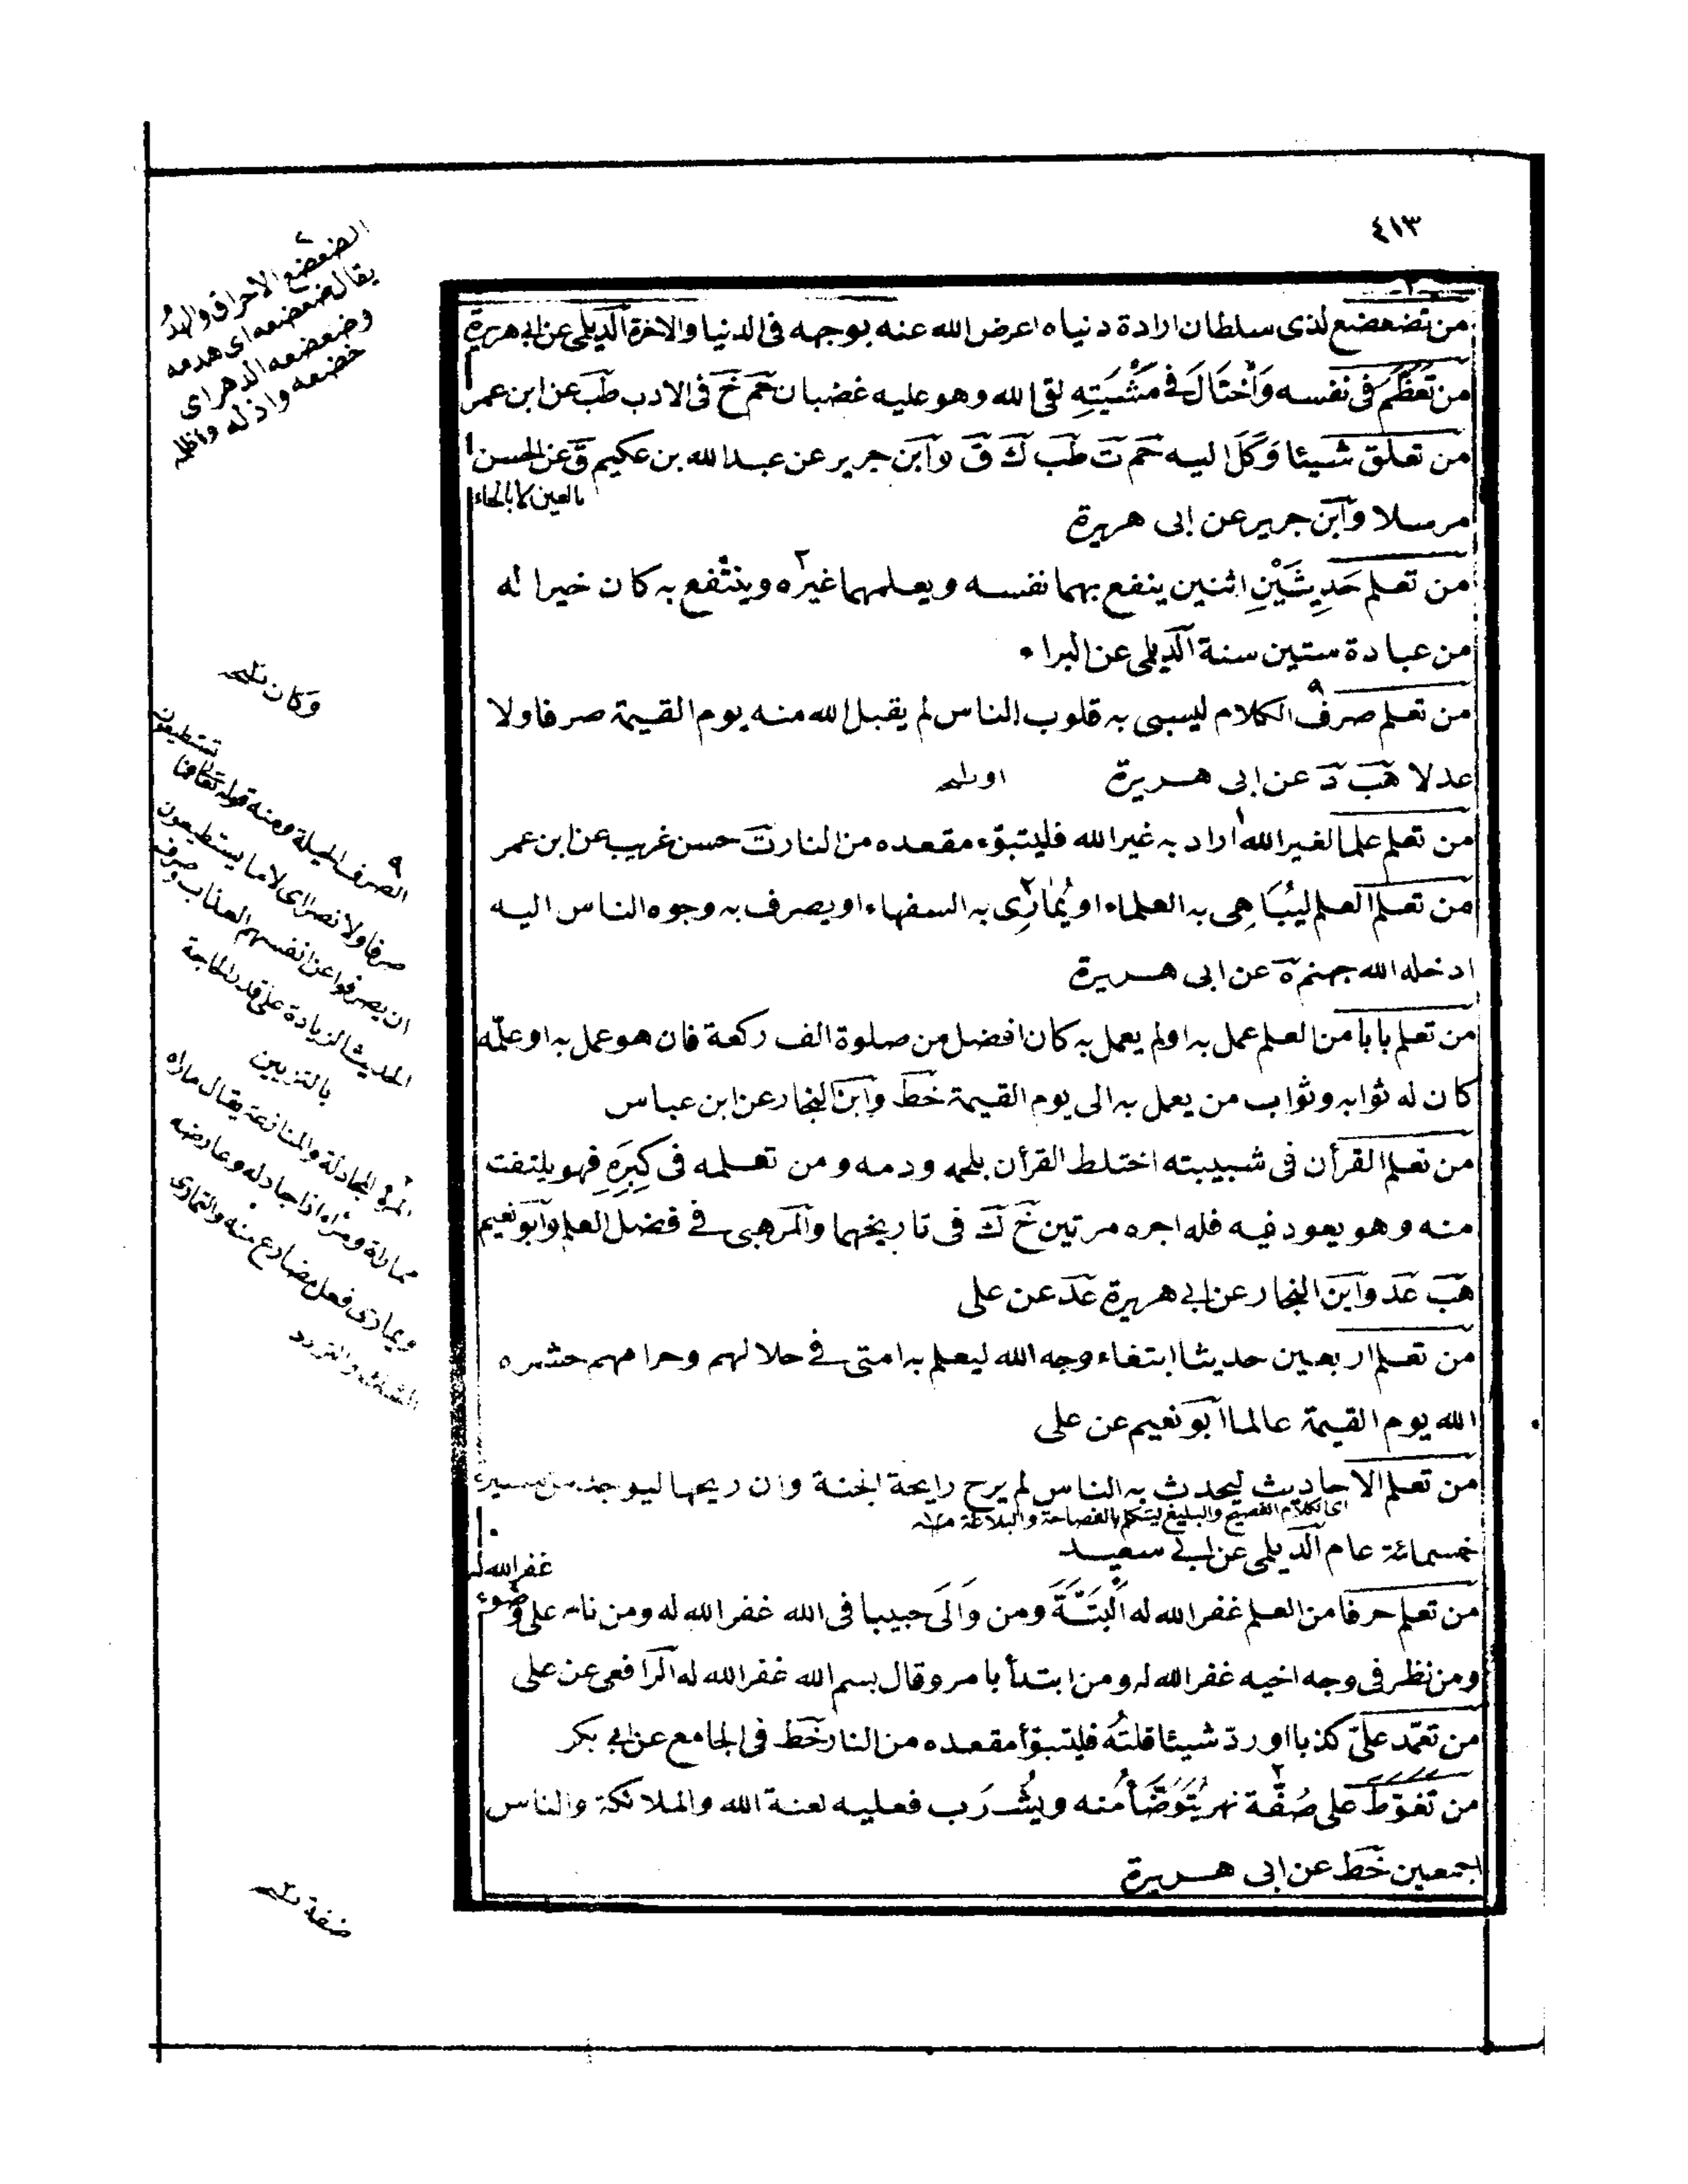 ٤١٣
من تضعضع لذى سلطان ارادة دنياه اعرض الله عنه بوجهه فى الدنيا والاخرة الديلمى عن ابى هريرة
من تَعَظَّمَ فى نفسه وَاخْتَالَ فى مَشْيَتِهِ لقى الله وهو عليه غضبان حم خ فى الادب طب عن ابن عمر
من تعلق شيئا وَكَلَ اليه حم ت طب ك ق وابن جرير عن عبد الله بن عكيم ق عن الحسن
بالعين لا بالحاء
مرسلا وابن جرير عن ابى هريرة
من تعلم حَدِيثَيْنِ اثنين ينفع بهما نفسه ويعلمهما غيره٢ وينتفع به كان خيرا له
من عبادة ستين سنة الديلمى عن البراء
من تعلم صرف٩ الكلام ليسبى به قلوب الناس لم يقبل الله منه يوم القيمة صرفا ولا
عدلا هب د عن ابى هريرة
او
من تعلم علما لغير الله اراد به غير الله فليتبوّء مقعده من النار ت حسن غريب عن ابن عمر
من تعلم العلم ليُبَاهِى به العلماء او يُمَارِى٢ به السفهاء او يصرف به وجوه الناس اليه
ادخله الله جهنم ه عن ابى هريرة
من تعلم بابا من العلم عمل به او لم يعمل به كان افضل من صلوة الف ركعة فان هو عمل به او علّمه
كان له ثوابه وثواب من يعمل به الى يوم القيمة خط وابن النجار عن ابن عباس
من تعلم القرأن فى شبيبته اختلط القرأن بلحمه ودمه ومن تعلمه فى كِبَرِهِ فهو يلتفت
منه وهو يعود فيه فله اجره مرتين خ ك فى تاريخهما والمرهبى فى فضل العلم وابو نعيم
هب عد وابن النجار عن ابى هريرة عد عن على
من تعلم اربعين حديثا ابتغاء وجه الله ليعلم به امتى فى حلالهم وحرامهم حشره
الله يوم القيمة عالما ابو نعيم عن على
من تعلم الاحاديث ليحدث به الناس لم يرح رايحة الجنة وان ريحها ليوجد من مسيرة
اى الكلام الفصيح والبليغ ليتكلم بالفصاحة والبلاغة
خمسمائة عام الديلمى عن ابى سعيد
غفر الله له
من تعلم حرفا من العلم غفر الله له اَلْبَتَّةَ ومن وَالَى حبيبا فى الله غفر الله له ومن نام على وضوء
ومن نظر فى وجه اخيه غفر الله له ومن ابتدأ بامر وقال بسم الله غفر الله له الرافعى عن على
من تعمّد علىّ كذبا او ردّ شيئا قلتُه فليتبوّأ مقعده من النار خط فى الجامع عن ابى بكر
من تَغَوَّطَ على ضُفَّة٢ نهر يُتَوَضَّأُ منه ويُشرَب فعليه لعنة الله والملائكة والناس
اجمعين خط عن ابى هريرة
الضعضع الاحراق والهدُّ
يقال ضعضعه اى هدمه
وضعضعه الدهر اى
خضعه واذله
وكان
٩ الصرف الحيلة ومنه قوله تعالى فما تستطيعون
صرفا ولا نصرا اى لا ما يستطيعون
ان يصرفوا عن انفسهم العذاب وصرف
الحديث الزيادة على قدر الحاجة
بالتزيين
المجادلة والمنازعة يقال ماراه
مماراة ومراء اذا جادله وعارضه
ويمارى فعل مضارع منه والتمارى
الشك والتردد
ضفة